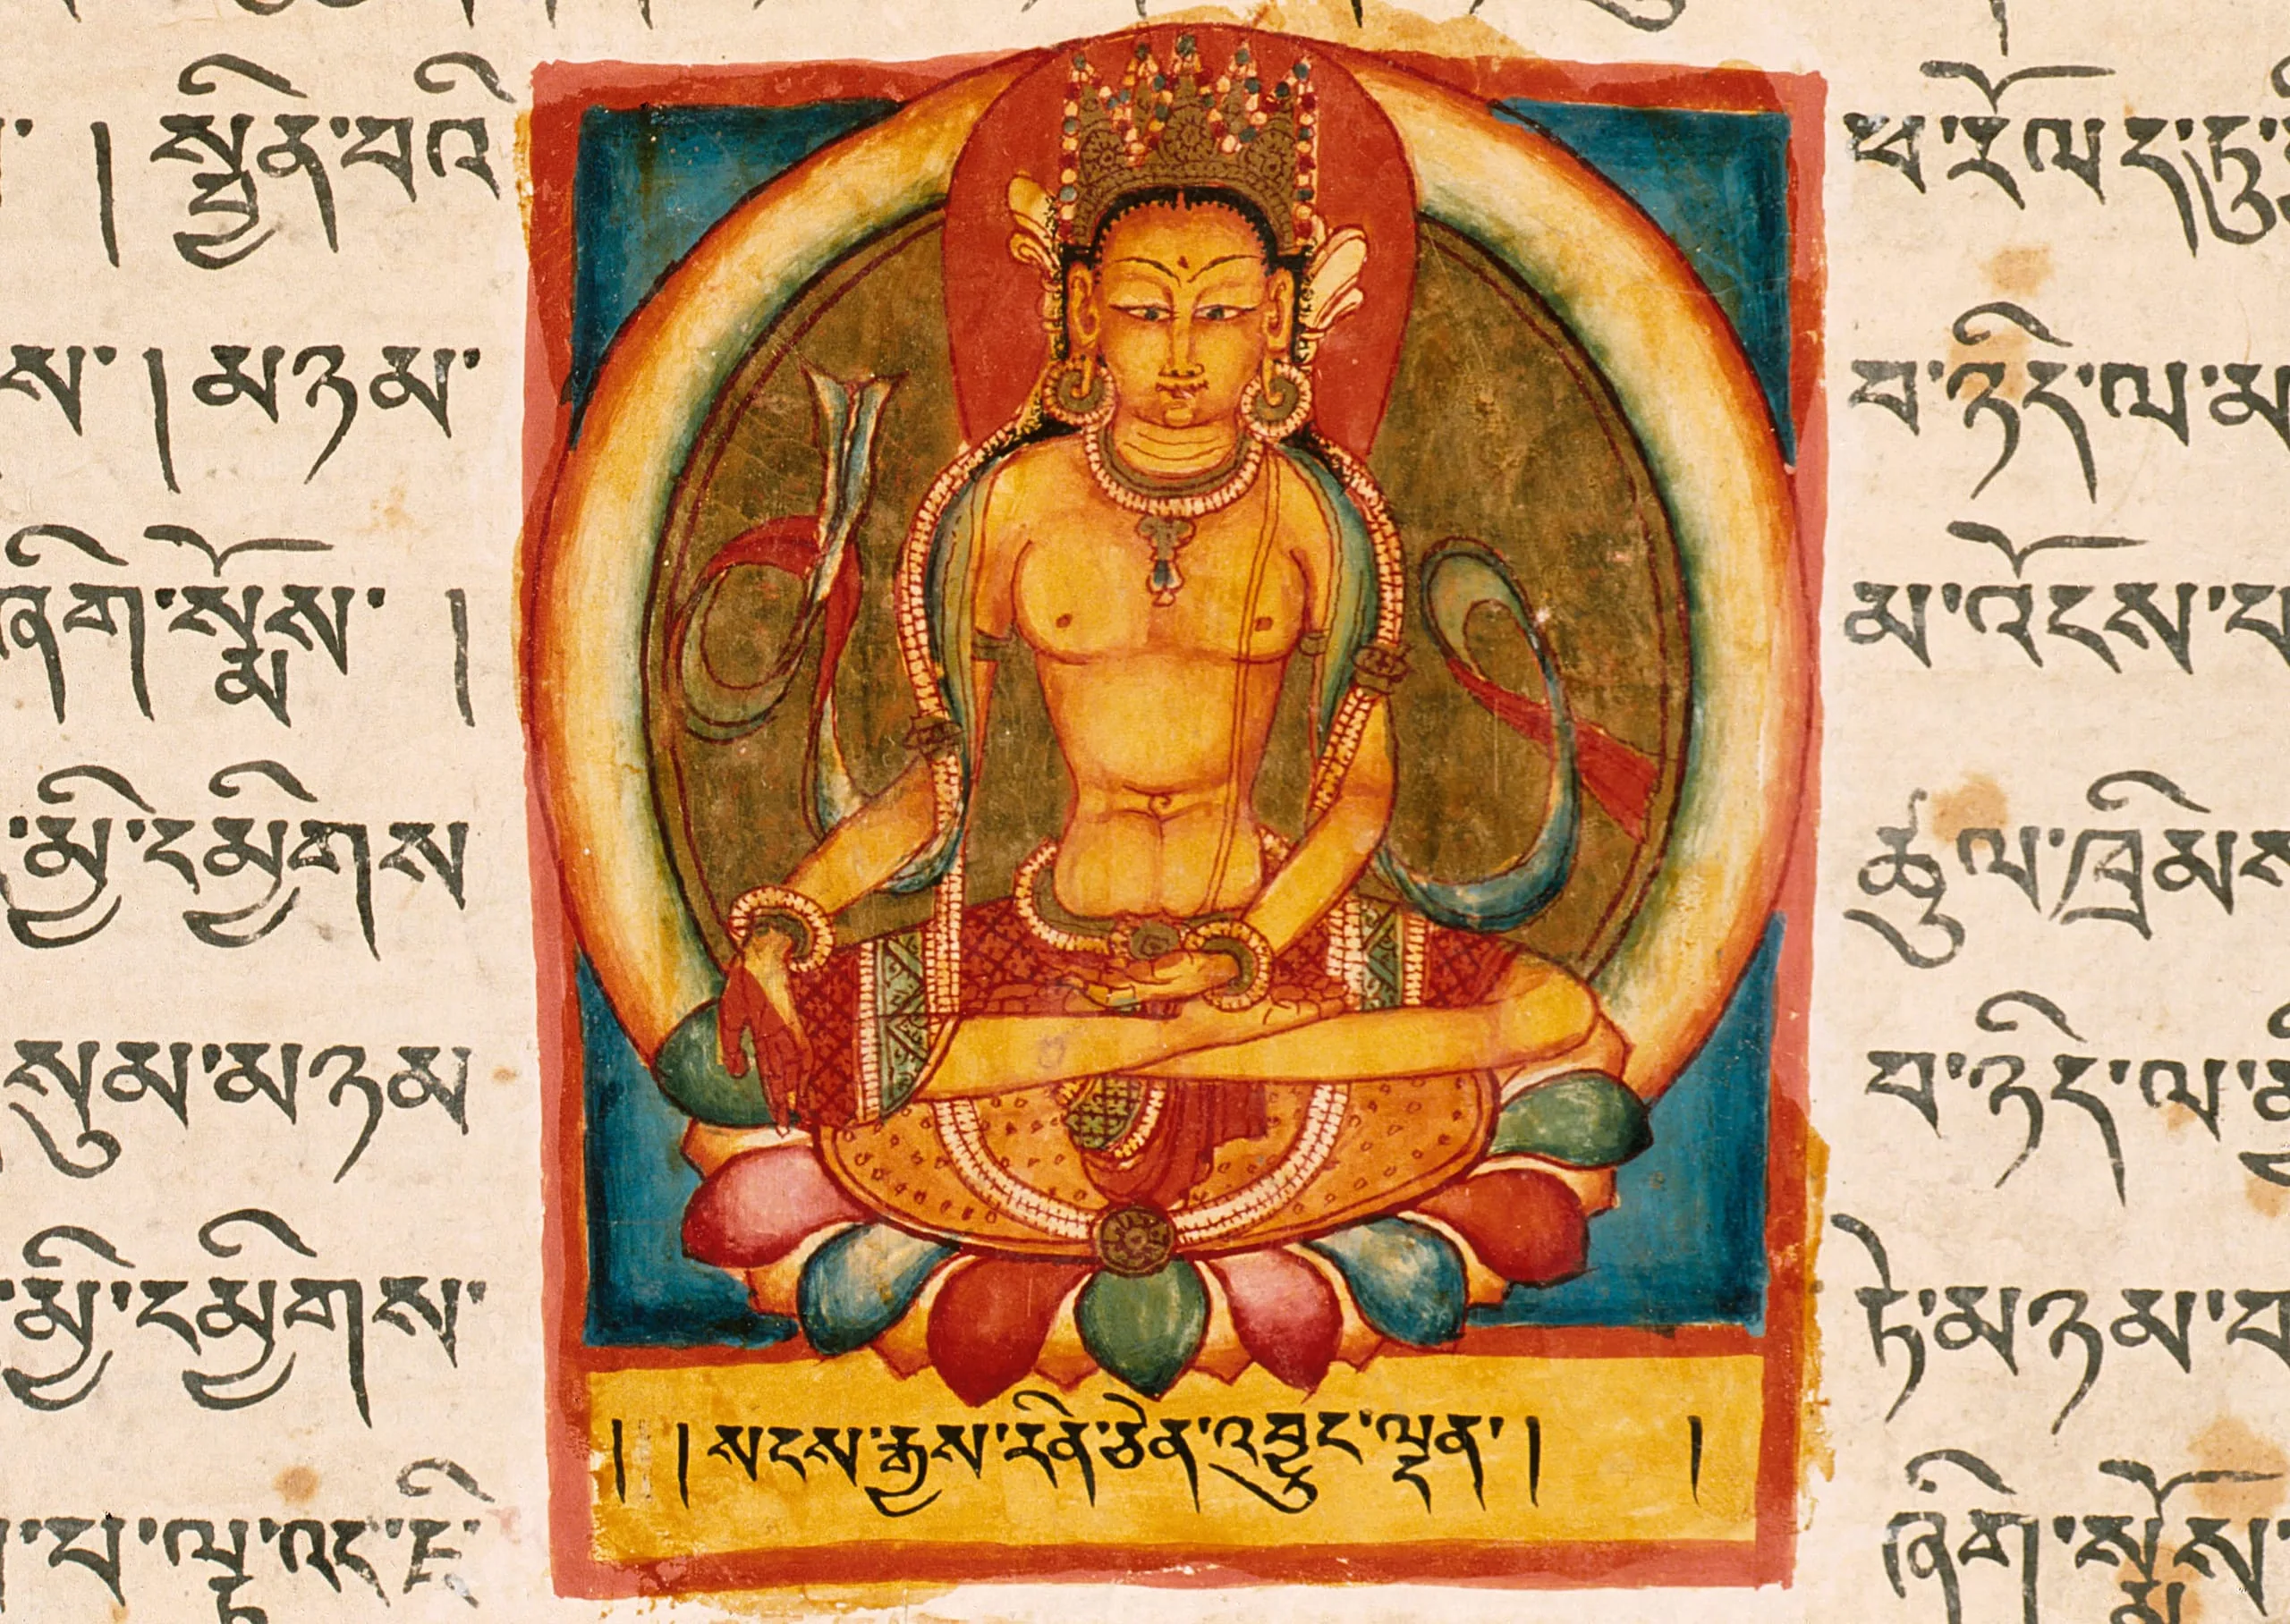 ། སྦྱིན་པའི
ས་ །མཉམ་
ཞིག་སྨོས་ །
མྱི་དམྱིགས
སུམ་མཉམ
མྱི་དམྱིགས་
པ་ལྟ་འང་
། །སངས་རྒྱས་རིན་ཅེན་འབྱུང་ལྡན་། །
ཕ་རོལ
པ་ཉིད་ལ་མ
མ་འོངས་པ
ཚུལ་ཁྲིམས
པ་ཉིད་ལ་
ཏེ་མཉམ་པ
ཞིག་སྨོས